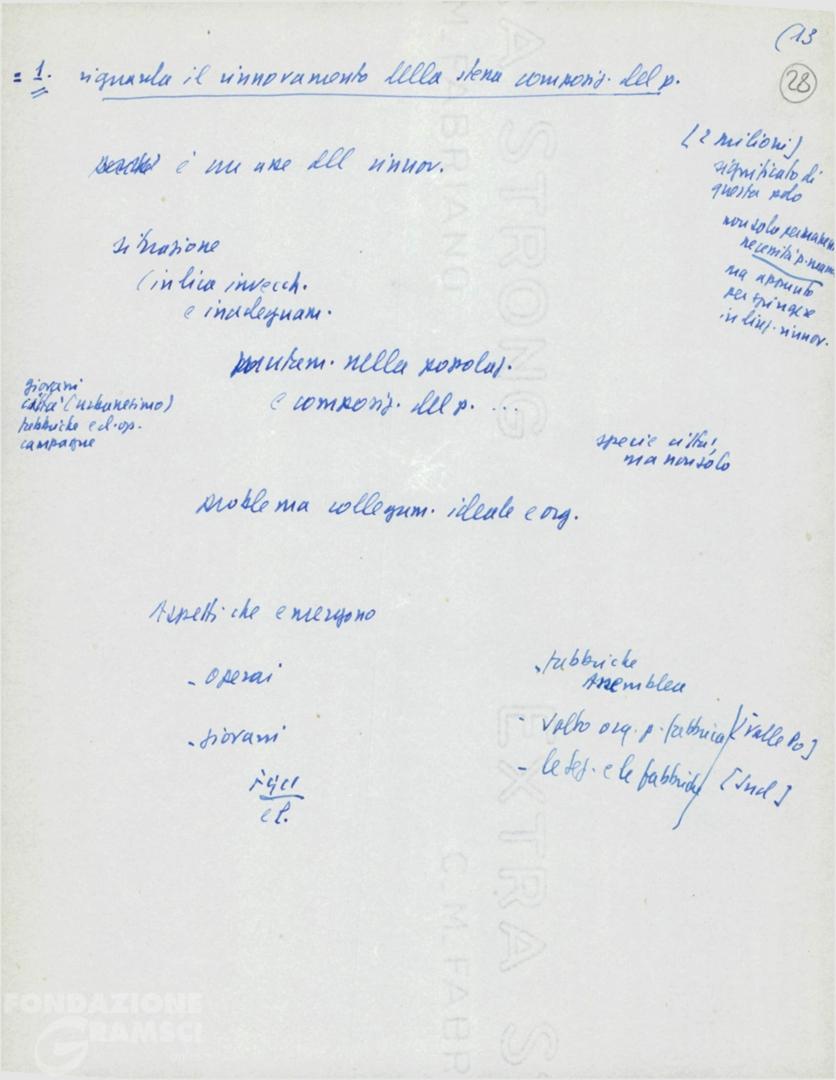 (13
28
= 1. riguarda il rinnovamento della stessa composiz. del p.
(2 milioni)
significato di
questa
è un asse dell rinnov.
non solo
necessità p.
ma appunto
per spingere
in linf. rinnov.
situazione
(indica invecch.
e inadeguam.
mutam. nella popolaz.
e composiz. del p. ...
giovani
città (urbanesimo)
fabbriche ed. op.
campagne
specie città,
ma non solo
problema collegam. ideale e org.
Aspetti che emergono
- operai
- giovani
FGCI
et.
- fabbriche
Assemblea
- volto org. p. fabbrica [valle Po]
- le sez. e le fabbriche [Sud]
CA STRONG
C.M.FABRIANO
EXTRA S
C.M.FABR
FONDAZIONE
GRAMSCI